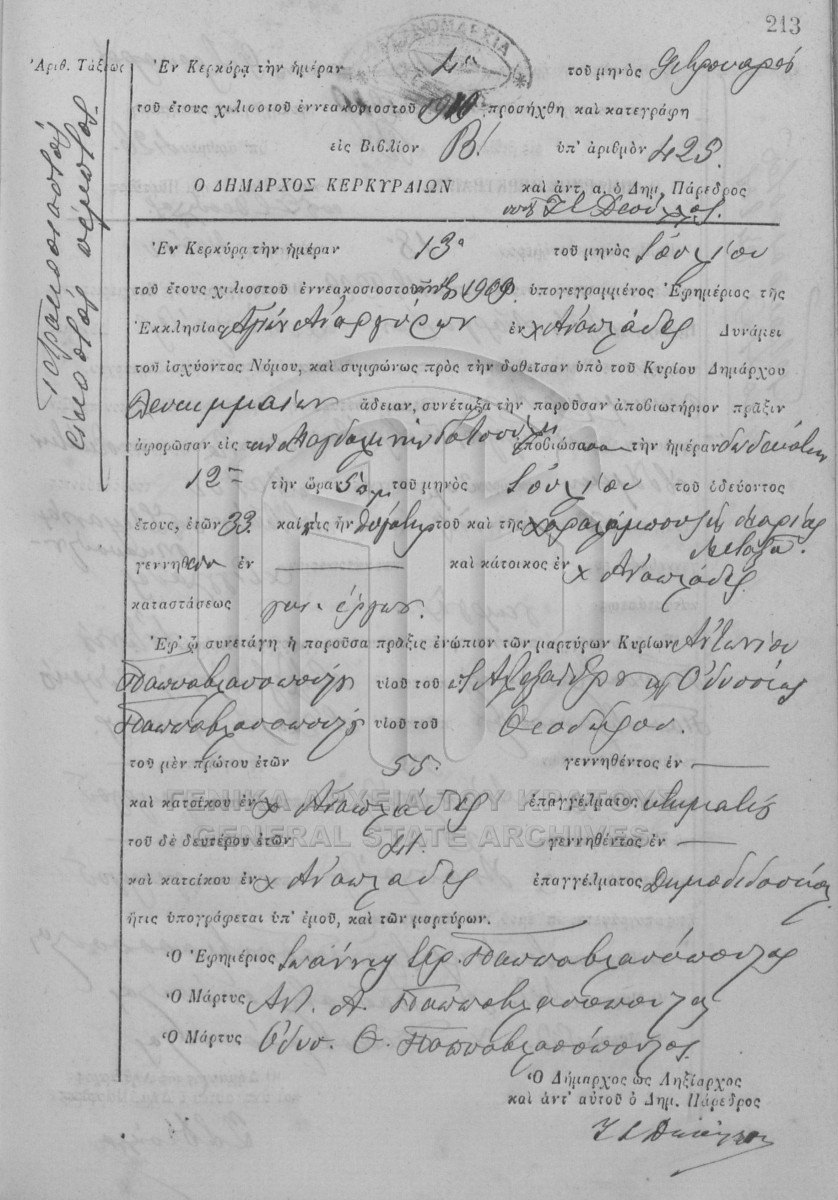 213
Ἀριθ. Τάξεως Ἐν Κερκύρᾳ τὴν ἡμέραν τοῦ μηνὸς Φεβρουαρίου
τοῦ ἔτους χιλιοστοῦ ἐννεακοσιοστοῦ 1910 προσήχθη καὶ κατεγράφη
εἰς Βιβλίον Β! ὑπ' ἀριθμὸν 425.
Ο ΔΗΜΑΡΧΟΣ ΚΕΡΚΥΡΑΙΩΝ καὶ ἀντ. α. ὁ Δημ. Πάρεδρος
Τετρακοσιοστὸς
εἰκοστὸς πέμπτος
Ἐν Κερκύρᾳ τὴν ἡμέραν 13η τοῦ μηνὸς Ἰουλίου
τοῦ ἔτους χιλιοστοῦ ἐννεακοσιοστοῦ 1909 ὁ ὑπογεγραμμένος Ἐφημέριος τῆς
Ἐκκλησίας Ἁγίων Ἀναργύρων ἐν χ Ἀναπλάδες Δυνάμει
τοῦ ἰσχύοντος Νόμου, καὶ συμφώνως πρὸς τὴν δοθεῖσαν ὑπὸ τοῦ Κυρίου Δημάρχου
Λευκιμμαίων ἄδειαν, συνέταξα τὴν παροῦσαν ἀποβιωτήριον πρᾶξιν
ἀφορῶσαν εἰς Μαγδαληνὴν ἀποβιώσασαν τὴν ἡμέραν δωδεκάτην
12ην τὴν ὥραν 5 μ.μ τοῦ μηνὸς Ἰουλίου τοῦ ὁδεύοντος
ἔτους, ἐτῶν 33. καὶ τις ἦν θυγάτηρ τοῦ καὶ τῆς Χαραλάμπους Μαρίας
Μεταξᾶ.
γεννηθεῖσαν ἐν — καὶ κάτοικος ἐν χ Ἀναπλάδες
καταστάσεως γυν. ἔργων.
Ἐφ' ᾧ συνετάγη ἡ παροῦσα πρᾶξις ἐνώπιον τῶν μαρτύρων Κυρίων Ἀντωνίου
Παππαβλασοπούλου υἱοῦ τοῦ Ἀλεξάνδρου καὶ Ὀδυσσέως
Παππαβλασοπούλου υἱοῦ τοῦ Θεοδώρου.
τοῦ μὲν πρώτου ἐτῶν 55. γεννηθέντος ἐν —
καὶ κατοίκου ἐν χ Ἀναπλάδες ἐπαγγέλματος κτηματίου
ΓΕΝΙΚΑ ΑΡΧΕΙΑ ΤΟΥ ΚΡΑΤΟΥΣ
GENERAL STATE ARCHIVES
τοῦ δὲ δευτέρου ἐτῶν γεννηθέντος ἐν —
καὶ κατοίκου ἐν χ Ἀναπλάδες ἐπαγγέλματος Δημοδιδασκάλου
ἥτις ὑπογράφεται ὑπ' ἐμοῦ, καὶ τῶν μαρτύρων.
Ὁ Ἐφημέριος Ἰωάννης Παππαβλασόπουλος
Ὁ Μάρτυς Ἀντ. Α. Παππαβλασόπουλος
Ὁ Μάρτυς Ὀδυσ. Θ. Παππαβλασόπουλος
Ὁ Δήμαρχος ὡς Ληξίαρχος
καὶ ἀντ' αὐτοῦ ὁ Δημ. Πάρεδρος